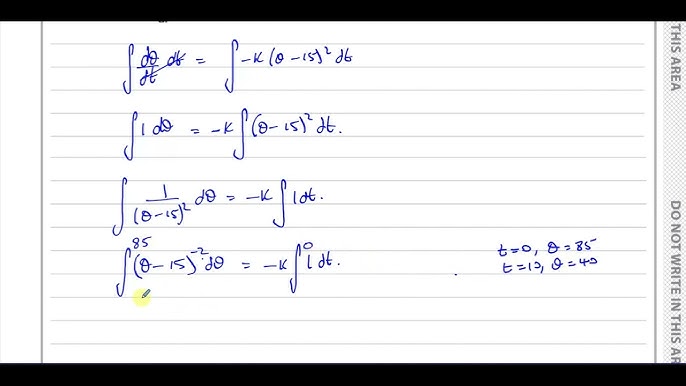 ∫ dθ/dt dt = ∫ -K (θ - 15)² dt
∫ 1 dθ = -K ∫ (θ - 15)² dt.
∫ 1/(θ - 15)² dθ = -K ∫ 1 dt.
∫⁸⁵ (θ - 15)⁻² dθ = -K ∫⁰ 1 dt.
t=0, θ = 85
t=10, θ = 40
THIS AREA
DO NOT WRITE IN THIS AR